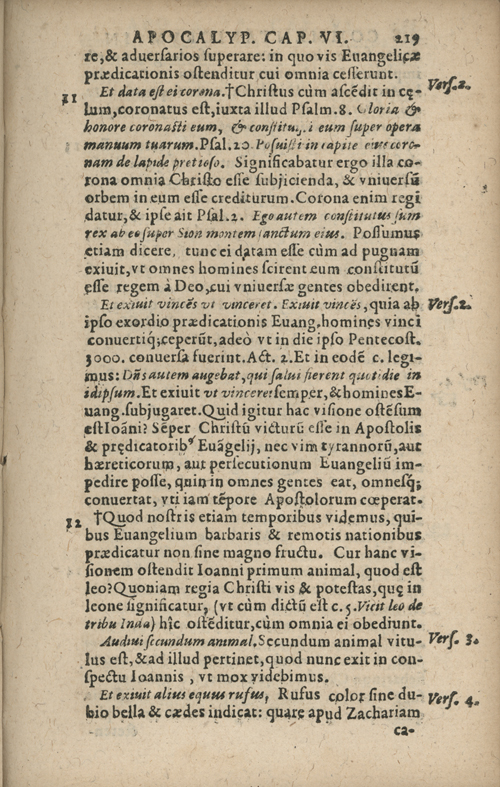 APOCALYP. CAP. VI. 219
re, & aduersarios superare: in quo vis Euangelicæ
prædicationis ostenditur cui omnia cesserunt.
Et data est ei corona. †Christus cùm ascēdit in cę- Vers. 2.
31 lum, coronatus est, iuxta illud Psalm. 8. Gloria &
honore coronasti eum, & constituisti eum super opera
manuum tuarum. Psal. 20 Posuisti in capite eius coro-
nam de lapide pretioso. Significabatur ergo illa co-
rona omnia Christo esse subijcienda, & vniuersū
orbem in eum esse crediturum. Corona enim regi
datur, & ipse ait Psal. 2. Ego autem constitutus sum
rex ab eo super Sion montem sanctum eius. Possumus
etiam dicere, tunc ei datam esse cùm ad pugnam
exiuit, vt omnes homines scirent eum constitutū
esse regem à Deo, cui vniuersæ gentes obedirent.
Et exiuit vincēs vt vinceret. Exiuit vincēs, quia ab Vers. 2.
ipso exordio prædicationis Euang. homines vinci
conuertiq; ceperūt, adeò vt in die ipso Pentecost.
3000. conuersa fuerint. Act. 2. Et in eodē c. legi-
mus: Dn̄s autem augebat, qui salui fierent quotidie in
idipsum. Et exiuit vt vinceret semper, & homines E-
uang. subjugaret. Quid igitur hac visione ostēsum
est Ioāni? Sēper Christū victurū esse in Apostolis
& prędicatorib⁹ Euāgelij, nec vim tyrannorū, aut
hæreticorum, aut persecutionum Euangeliū im-
pedire posse, quin in omnes gentes eat, omnesq;
conuertat, vti iam tēpore Apostolorum cœperat.
32 †Quod nostris etiam temporibus videmus, qui-
bus Euangelium barbaris & remotis nationibus
prædicatur non sine magno fructu. Cur hanc vi-
sionem ostendit Ioanni primum animal, quod est
leo? Quoniam regia Christi vis & potestas, quę in
leone significatur, (vt cùm dictū est c. 5. Vicit leo de
tribu Iuda) hîc ostēditur, cùm omnia ei obediunt.
Audiui secundum animal. Secundum animal vitu- Vers. 3.
lus est, & ad illud pertinet, quod nunc exit in con-
spectu Ioannis, vt mox videbimus.
Et exiuit alius equus rufus, Rufus color sine du- Vers. 4.
bio bella & cædes indicat: quare apud Zachariam
ca-